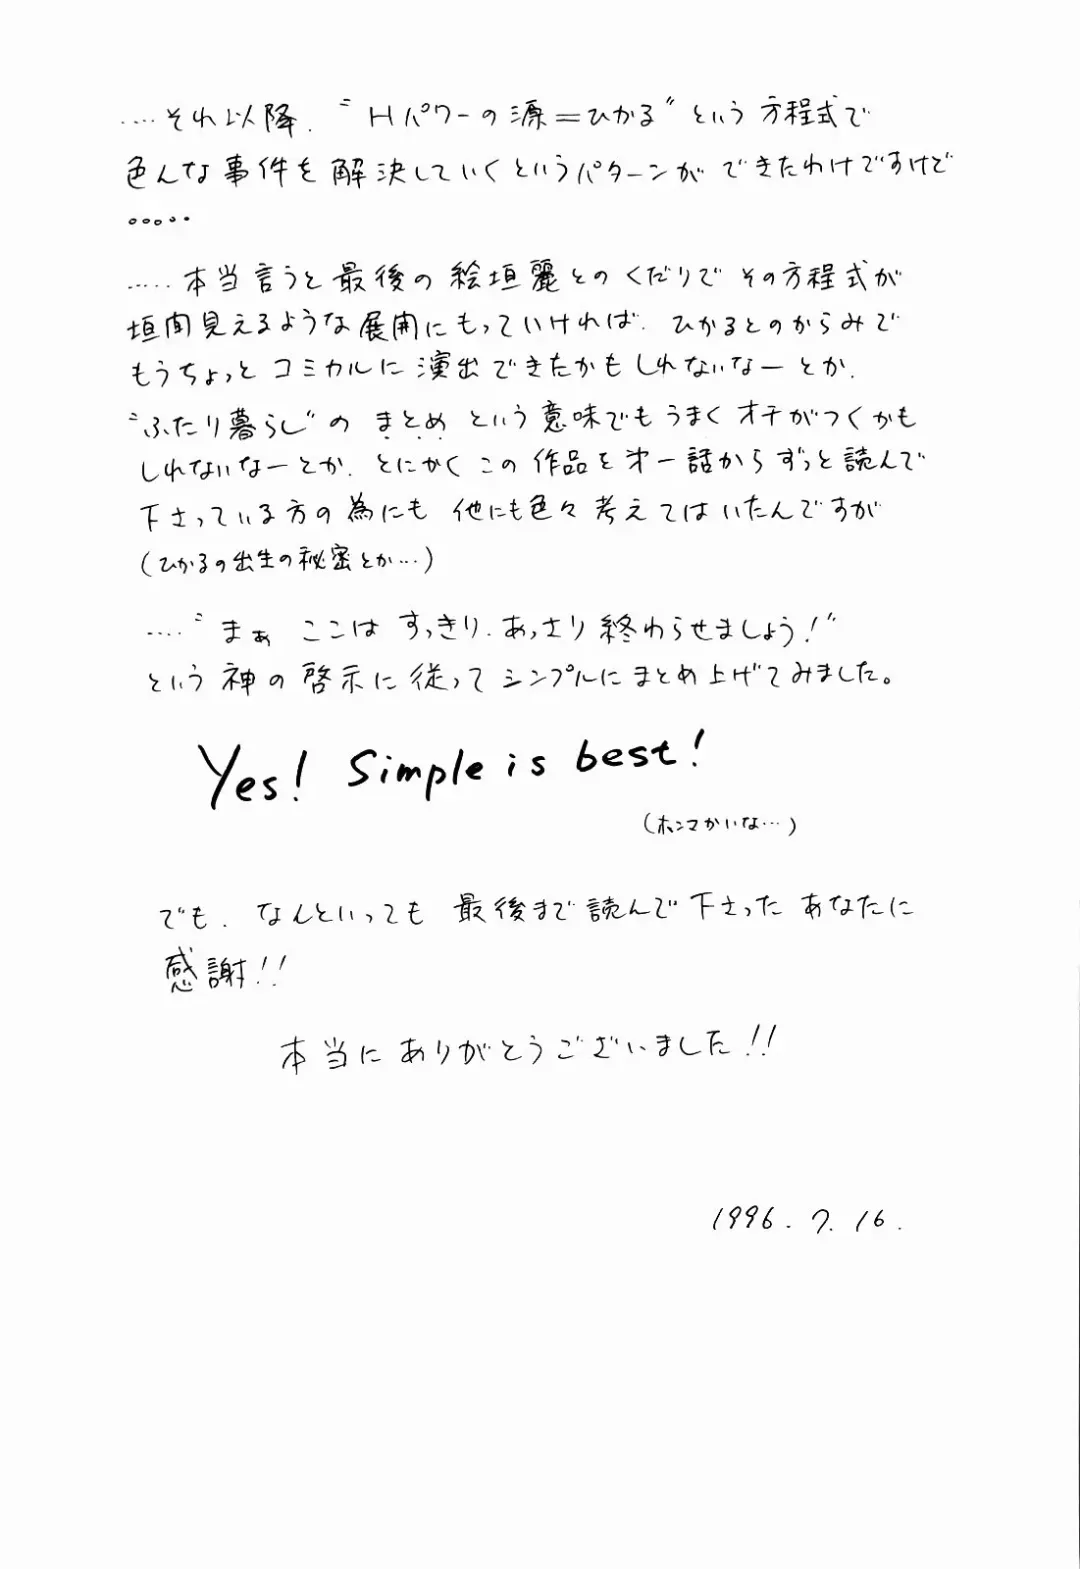 ....それ以降、"Hパワーの源=ひかる"という方程式で
色んな事件を解決していくというパターンができたわけですけど
......
.....本当言うと最後の絵垣麗とのくだりでその方程式が
垣間見えるような展開にもっていければ、ひかるとのからみで
もうちょっとコミカルに演出できたかもしれないなーとか、
"ふたり暮らし"のまとめという意味でもうまくオチがつくかも
しれないなーとか、とにかくこの作品を第一話からずっと読んで
下さっている方の為にも他にも色々考えてはいたんですが
(ひかるの出生の秘密とか…)
...."まぁここはすっきり、あっさり終わらせましょう!"
という神の啓示に従ってシンプルにまとめ上げてみました。
Yes! Simple is best!
(ホンマかいな…)
でも、なんといっても最後まで読んで下さったあなたに
感謝!!
本当にありがとうございました!!
1996.7.16.